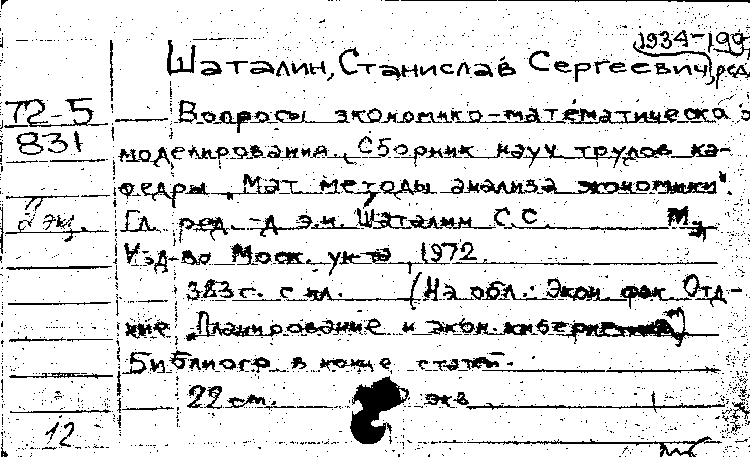 1934-199
Шаталин, Станислав Сергеевич, ред.
72-5 Вопросы экономико-математическо
831 моделирования. Сборник науч трудов ка-
федры "Мат методы анализа экономики".
2 экз. Гл. ред. -д э.н. Шаталин С.С. М.,
Изд-во Моск. ун-та, 1972.
383 с. с ил. (На обл.: Экон фак Отд-
ние "Планирование и экон. кибернетика")
Библиогр в конце статей.
22 см. экз
12